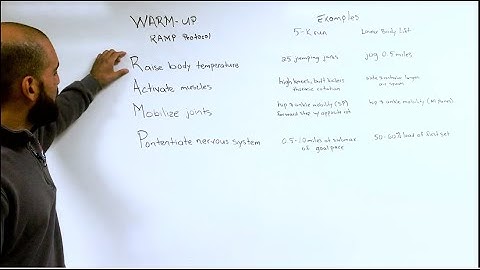 WARM-UP
RAMP Protocol
Examples
5-K run
Lower Body Lift
Raise body temperature
25 jumping jacks
jog 0.5 miles
Activate muscles
high knees, butt kickers
thoracic rotation
air squat
Mobilize joints
hip & ankle mobility
forward step w/ opposite rot
hip & ankle mobility
Pontentiate nervous system
0.5-1.0 miles at submax
goal pace
50-60% load of first set